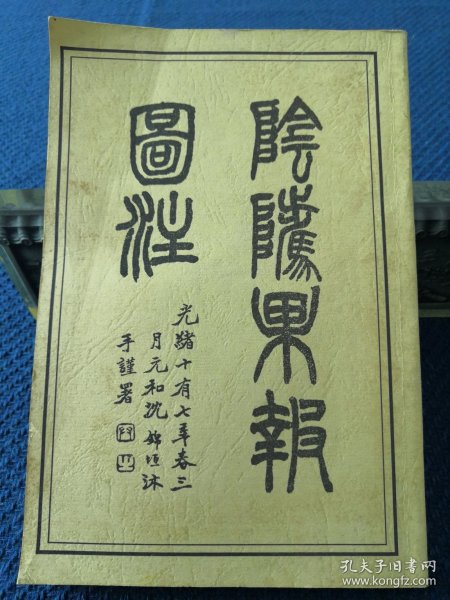 陰騭果報
圖注
光緒十有七年春三
月元和沈錦垣沐
手謹署
孔夫子旧书网
www.kongfz.com